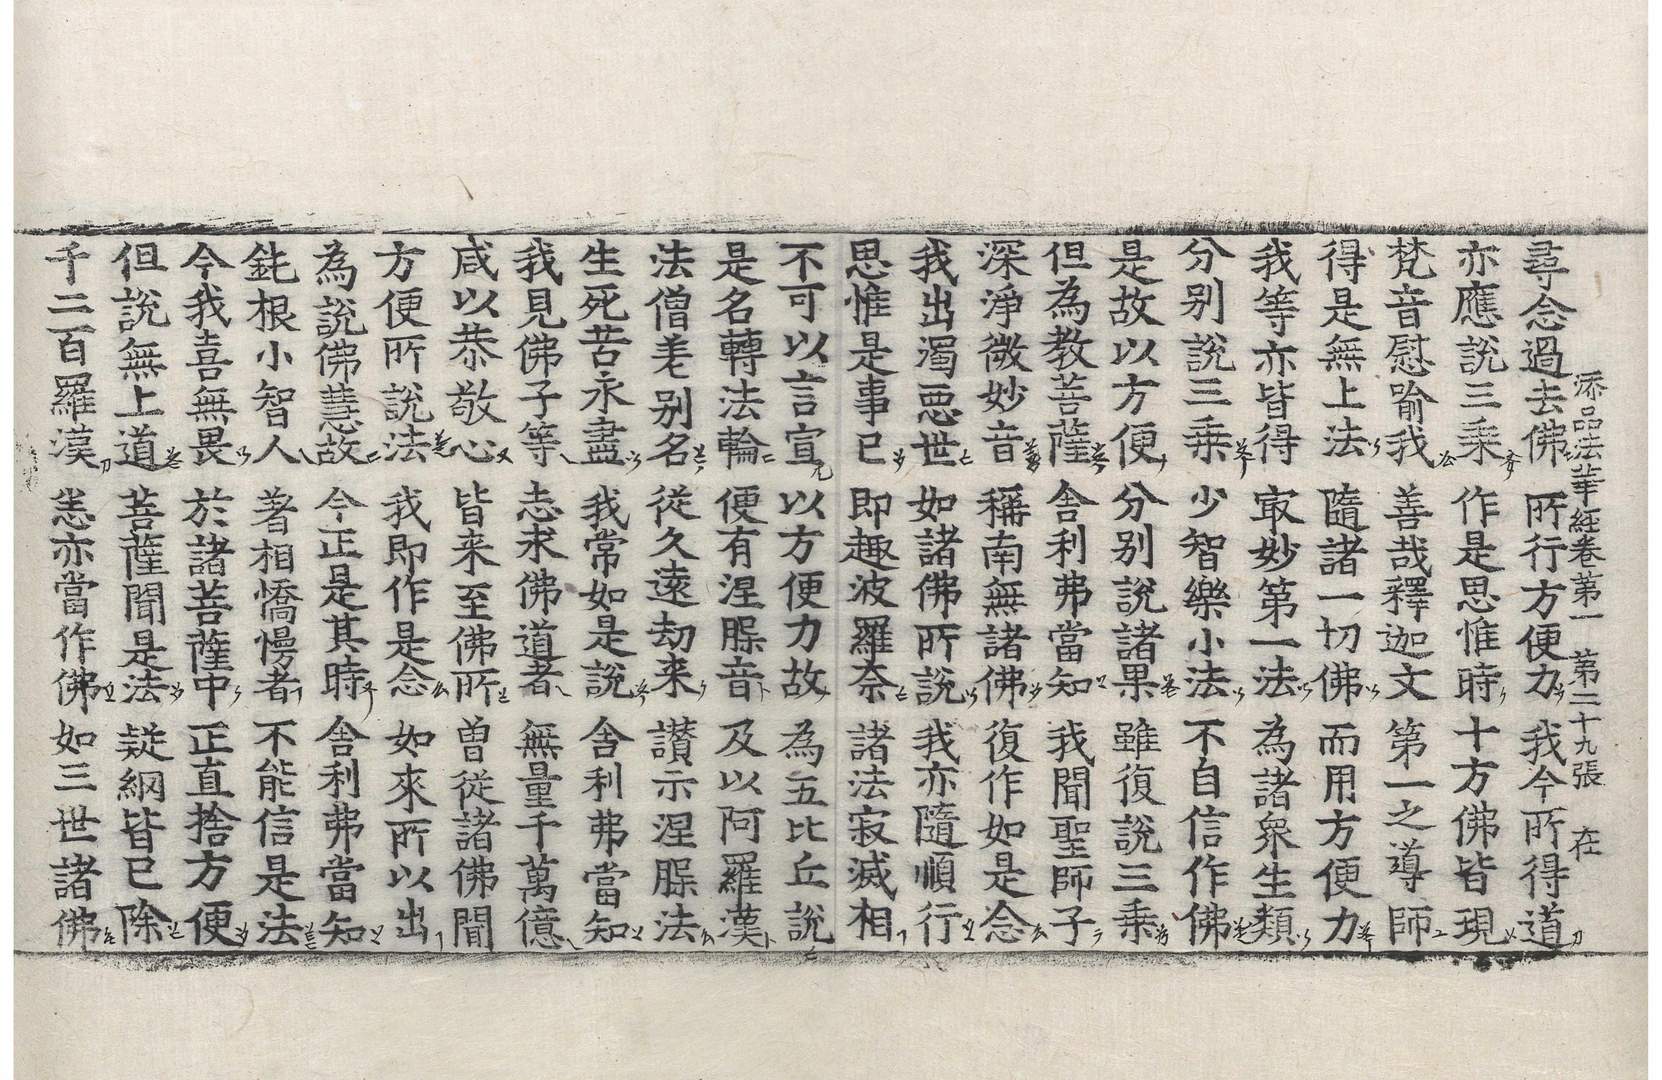 添品法華經卷第一 第二十九張 在
尋念過去佛 所行方便力 我今所得道
亦應說三乘 作是思惟時 十方佛皆現
梵音慰喻我 善哉釋迦文 第一之導師
得是無上法 隨諸一切佛 而用方便力
我等亦皆得 㝡妙第一法 為諸衆生類
分別說三乘 少智樂小法 不自信作佛
是故以方便 分別說諸果 雖復說三乘
但為教菩薩 舍利弗當知 我聞聖師子
深淨微妙音 稱南無諸佛 復作如是念
我出濁惡世 如諸佛所說 我亦隨順行
思惟是事已 即趣波羅奈 諸法寂滅相
不可以言宣 以方便力故 為五比丘說
是名轉法輪 便有涅槃音 及以阿羅漢
法僧差別名 從久遠劫来 讃示涅槃法
生死苦永盡 我常如是說 舍利弗當知
我見佛子等 志求佛道者 無量千萬億
咸以恭敬心 皆来至佛所 曽從諸佛聞
方便所說法 我即作是念 如來所以出
為說佛慧故 今正是其時 舍利弗當知
鈍根小智人 著相憍慢者 不能信是法
今我喜無畏 於諸菩薩中 正直捨方便
但說無上道 菩薩聞是法 疑網皆已除
千二百羅漢 悉亦當作佛 如三世諸佛